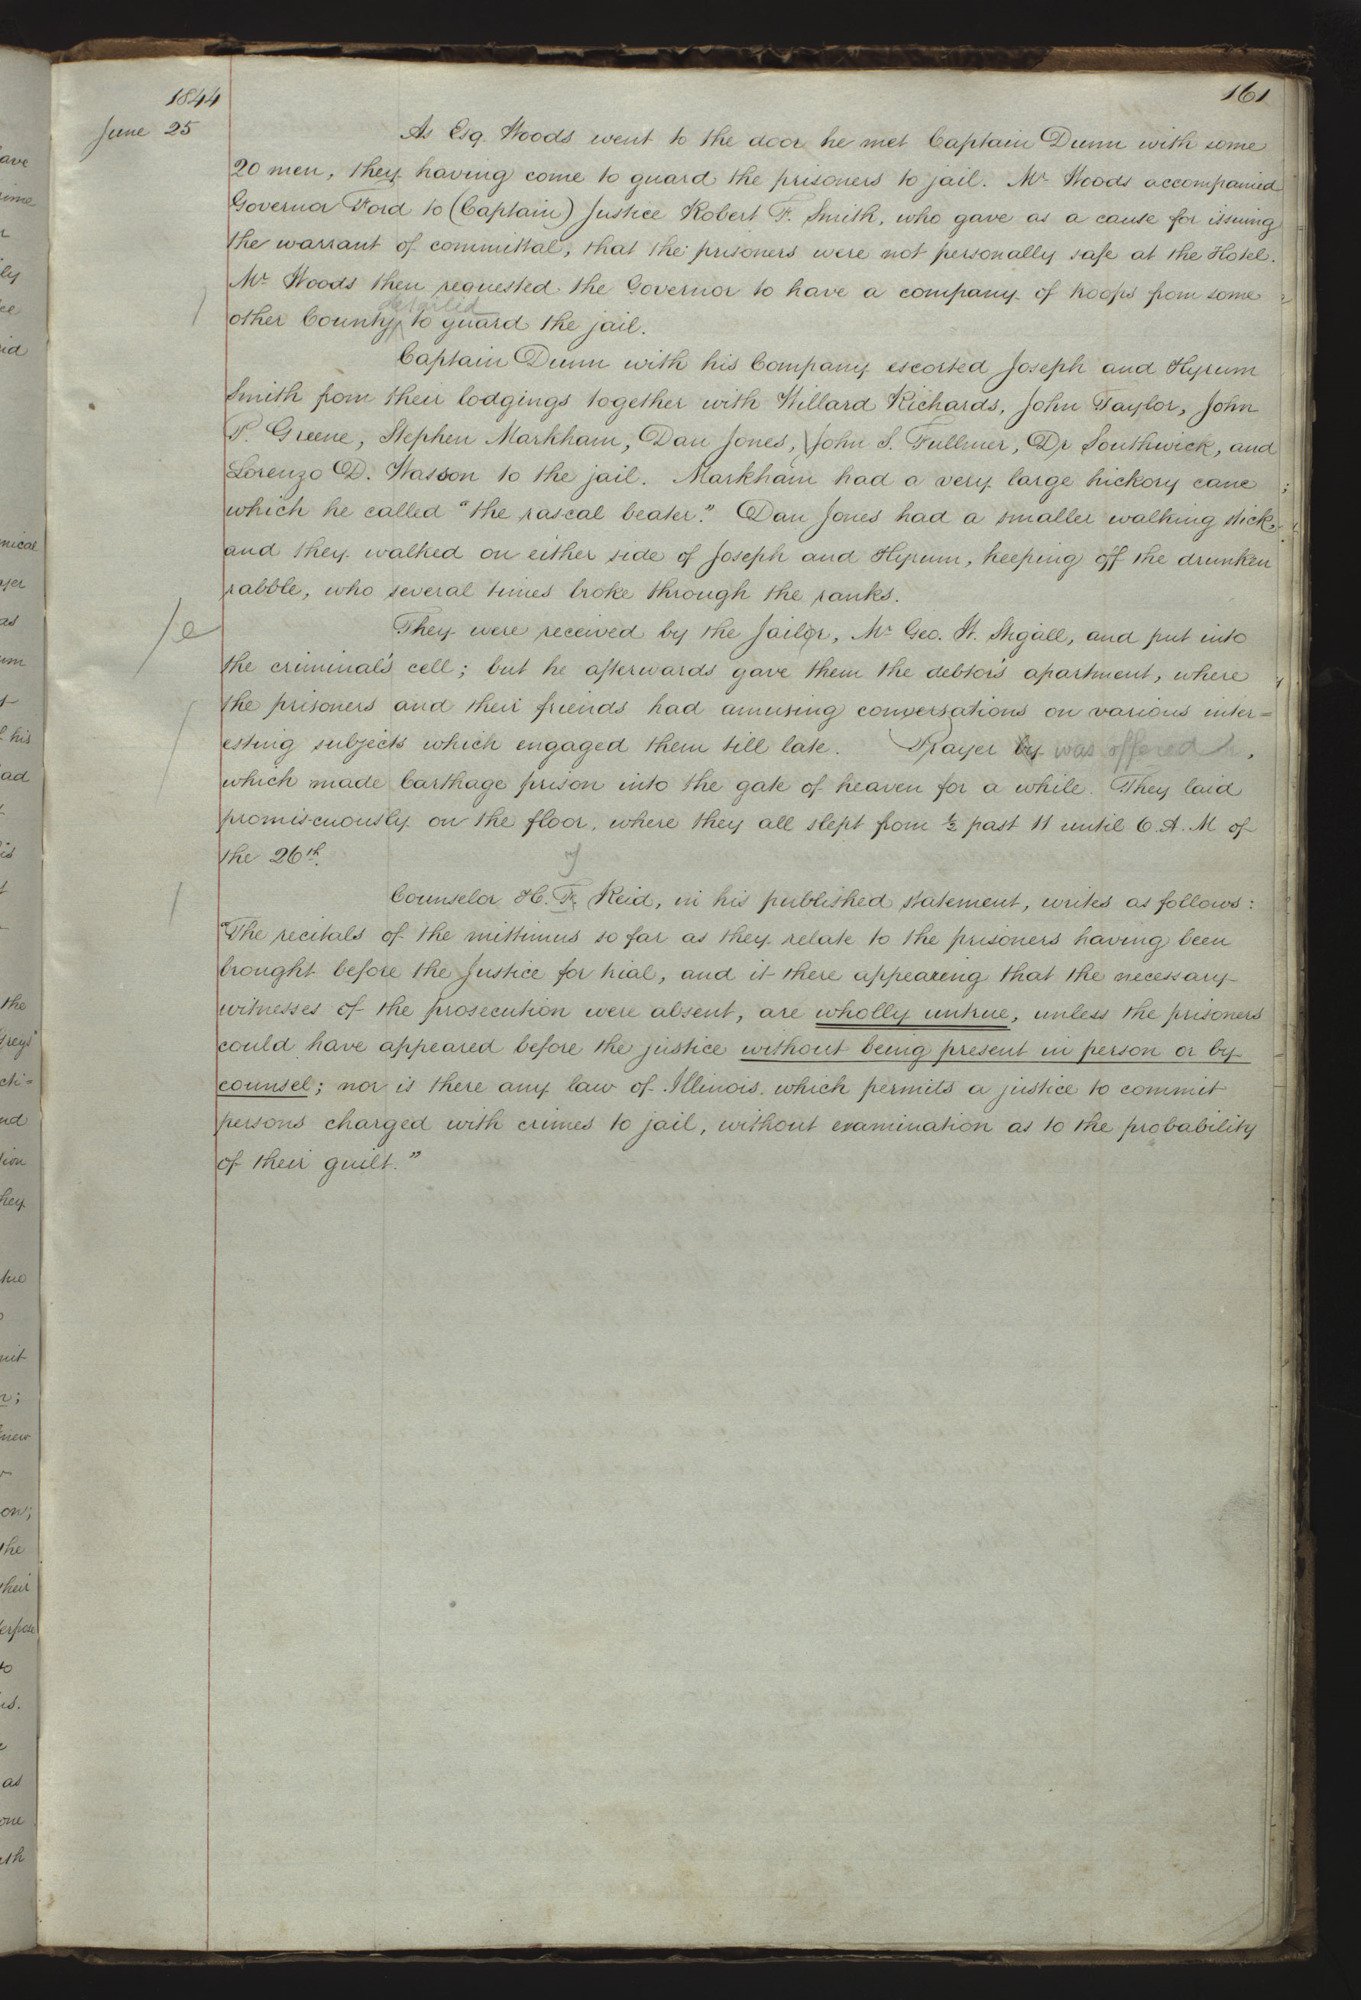 161
1844
June 25
As Esq. Woods went to the door he met Captain Dunn with some
20 men, they having come to guard the prisoners to jail. Mr Woods accompanied
Governor Ford to (Captain) Justice Robert F. Smith, who gave as a cause for issuing
the warrant of committal, that the prisoners were not personally safe at the Hotel.
Mr Woods then requested the Governor to have a company of troops from some
detailed
other County to guard the jail.
Captain Dunn with his Company escorted Joseph and Hyrum
Smith from their lodgings together with Willard Richards, John Taylor, John
P. Greene, Stephen Markham, Dan Jones, John S. Fullmer, Dr Southwick, and
Lorenzo D. Wasson to the jail. Markham had a very large hickory cane
which he called "the rascal beater." Dan Jones had a smaller walking stick,
and they walked on either side of Joseph and Hyrum, keeping off the drunken
rabble, who several times broke through the ranks.
/e
They were received by the Jailor, Mr Geo. W. Stigall, and put into
the criminal's cell; but he afterwards gave them the debtor's apartment, where
the prisoners and their friends had amusing conversations on various inter=
esting subjects which engaged them till late. Prayer by was offered,
which made Carthage prison into the gate of heaven for a while. They laid
promiscuously on the floor, where they all slept from ½ past 11 until 6 A. M of
the 26th.
Counselor H. T. Reid, in his published statement, writes as follows:
"The recitals of the mittimus so far as they relate to the prisoners having been
brought before the Justice for trial, and it there appearing that the necessary
witnesses of the prosecution were absent, are wholly untrue, unless the prisoners
could have appeared before the justice without being present in person or by
counsel; nor is there any law of Illinois which permits a justice to commit
persons charged with crimes to jail, without examination as to the probability
of their guilt."